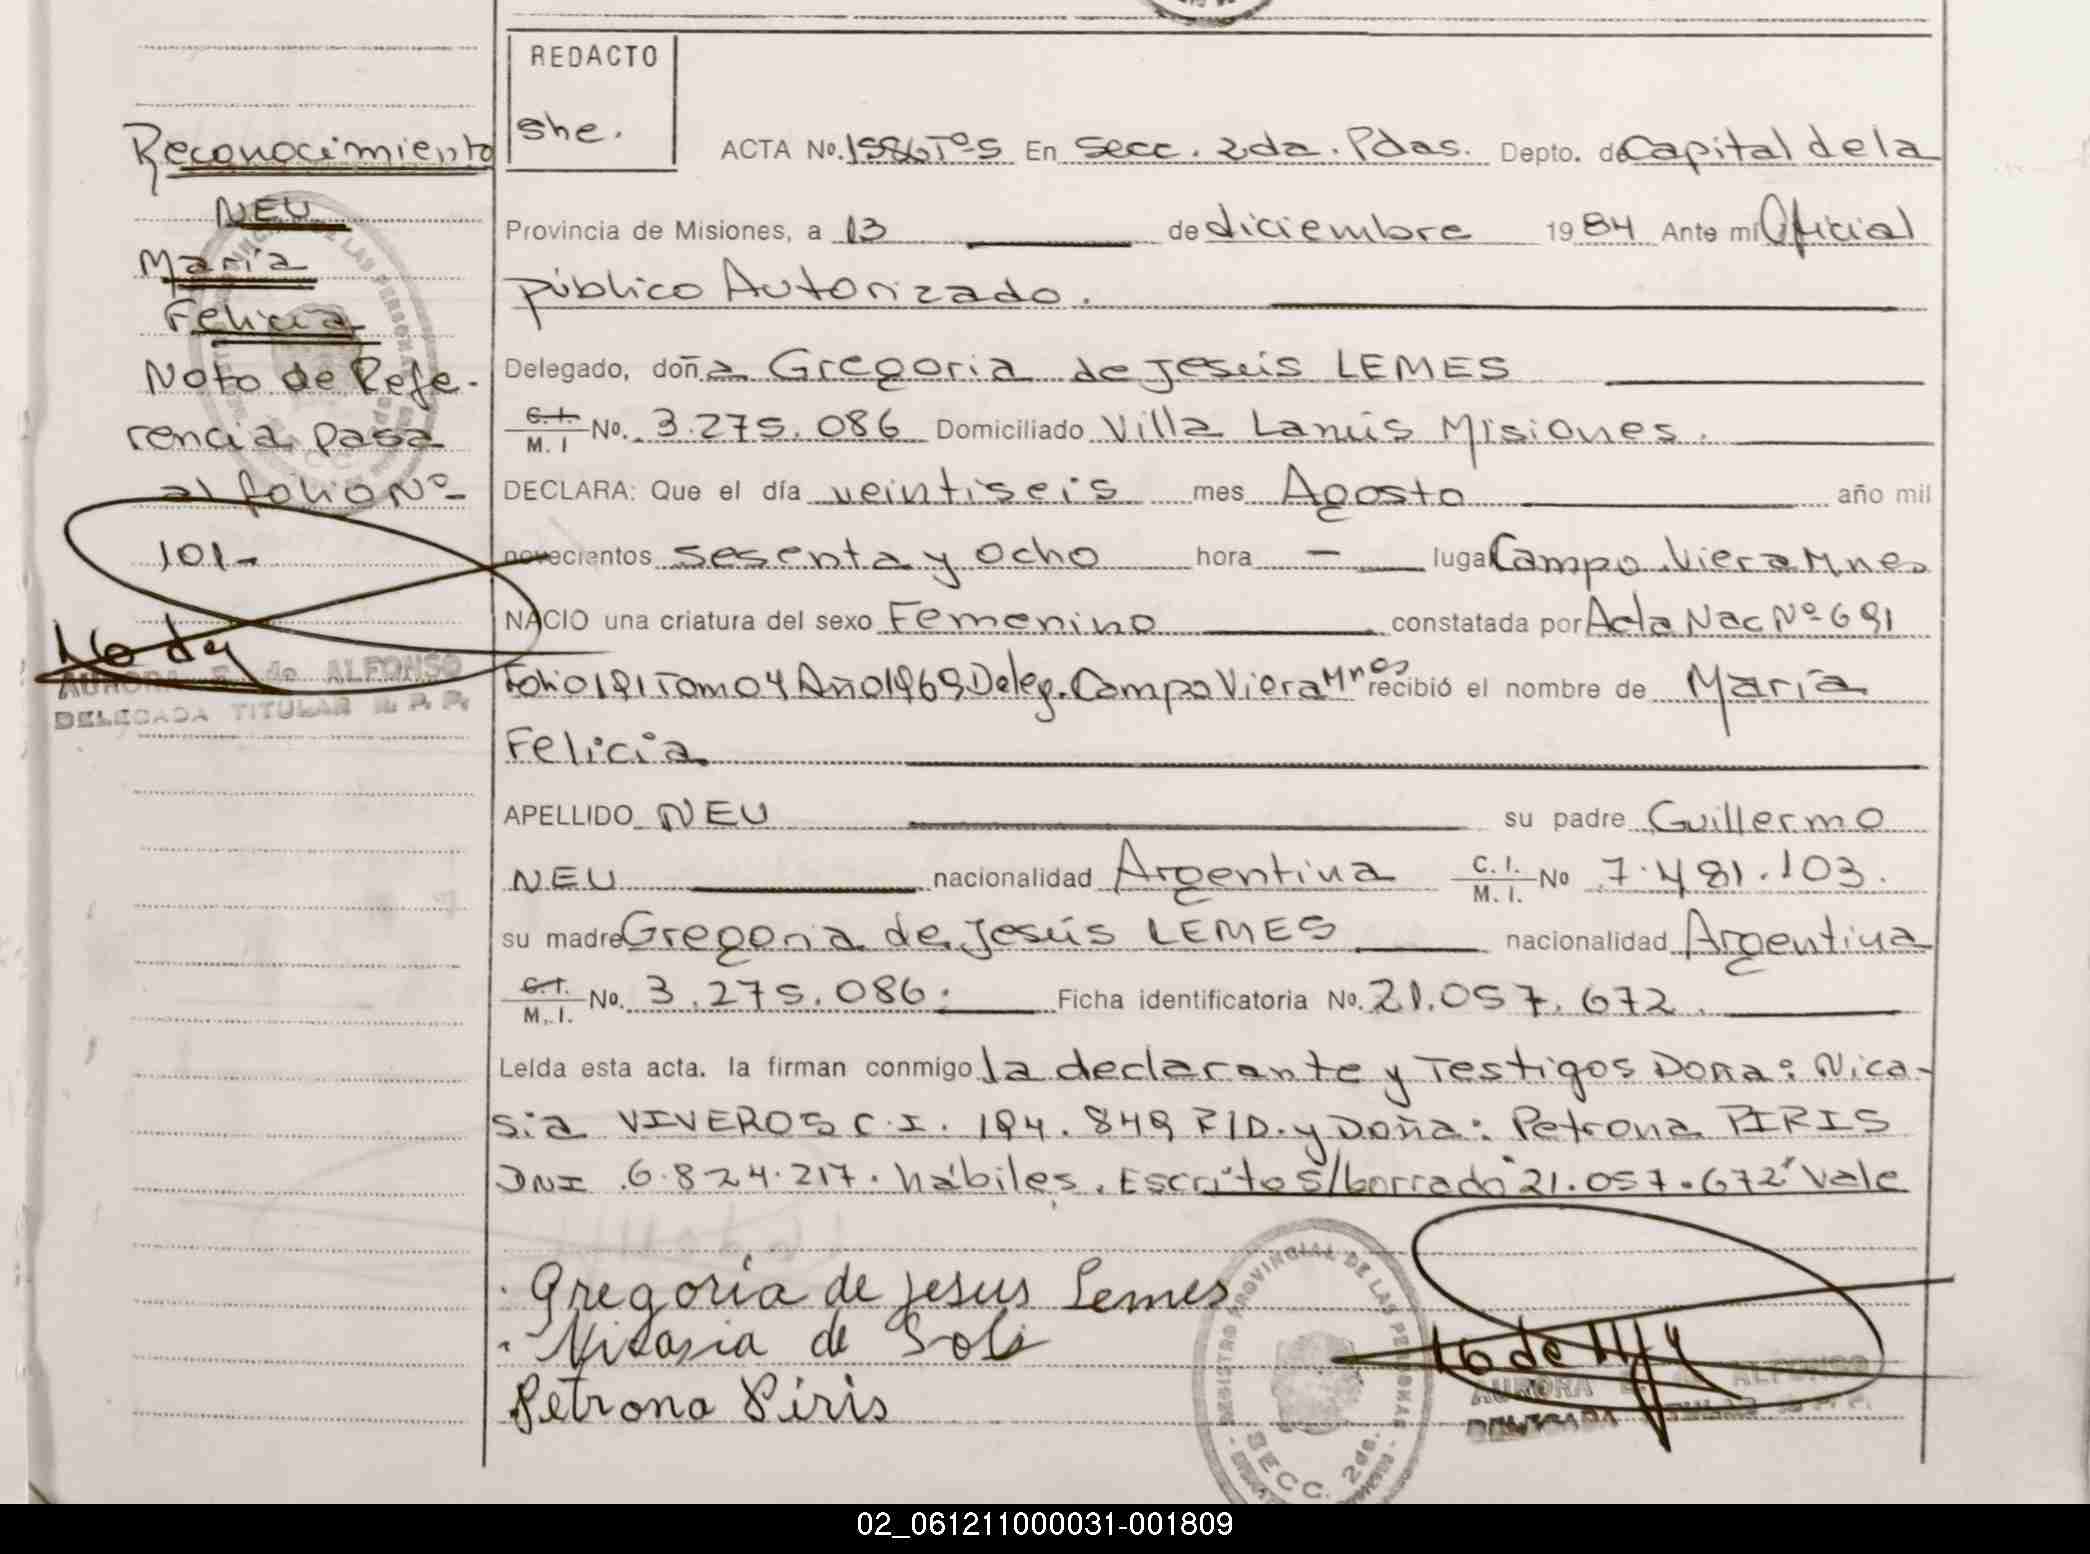 REDACTO
she.
Reconocimiento
NEU
María
Felicia
Noto de Refe-
rencia pasa
al folio Nº
101-
AURORA E. de ALFONSO
DELEGADA TITULAR R. P. P.
ACTA No. 1586 Tº 5 En Secc. 2da. Pdas. Depto. de Capital de la
Provincia de Misiones, a 13 de diciembre 1984 Ante mi Oficial
público Autorizado.
Delegado, doña Gregoria de Jesús LEMES
C.I. M. I No. 3.275.086 Domiciliado Villa Lanús Misiones.
DECLARA: Que el día veintiseis mes Agosto año mil
novecientos sesenta y ocho hora — lugar Campo Viera Mnes
NACIO una criatura del sexo Femenino constatada por Acta Nac Nº 691
Folio 191 Tomo 4 Año 1969 Deleg. Campo Viera Mnes recibió el nombre de María
Felicia
APELLIDO NEU su padre Guillermo
NEU nacionalidad Argentina C. I. M. I. No 7.481.103.
su madre Gregoria de Jesús LEMES nacionalidad Argentina
C.I. M. I. No. 3.275.086. Ficha identificatoria No. 21.057.672.
Leída esta acta. la firman conmigo la declarante y Testigos Doña: Nica-
sia VIVEROS C.I. 194.849 P/D. y Doña: Petrona PIRIS
DNI 6.824.217. hábiles. Escrito s/borrado "21.057.672" Vale
Gregoria de Jesus Lemes
Nicasia de Soli
Petrona Piris
REGISTRO PROVINCIAL DE LAS PERSONAS
SECC. 2da.
AURORA E. de ALFONSO
DELEGADA TITULAR R. P. P.
02_061211000031-001809